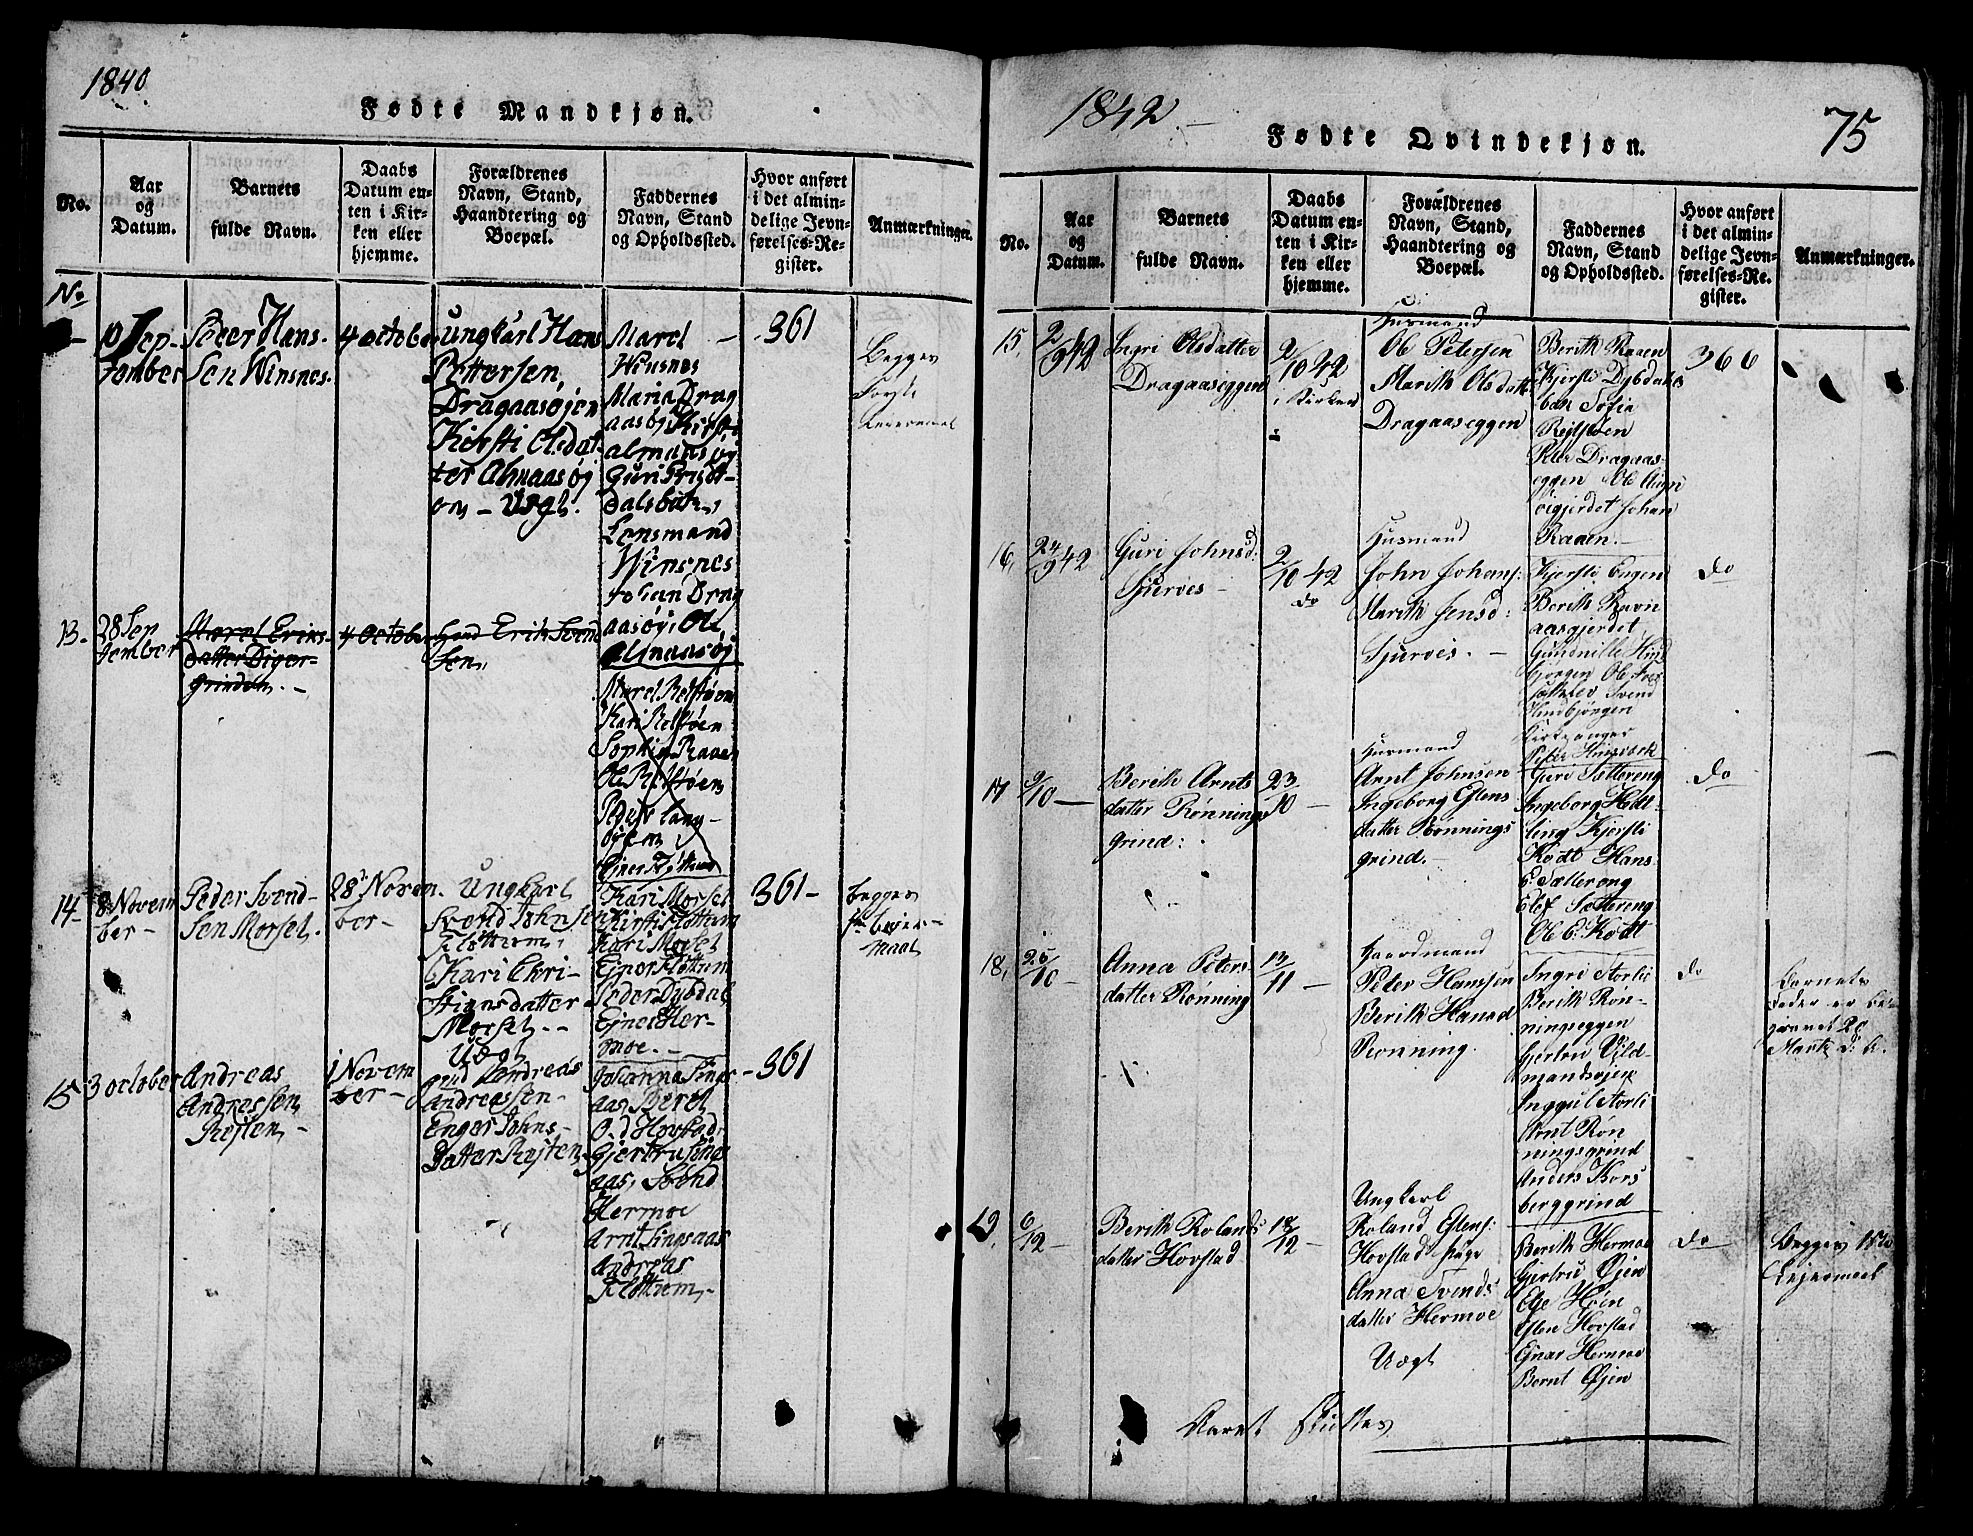 1840
Fødte Mandkjøn.
No.
Aar
og
Datum.
Barnets
fulde Navn.
Daabs
Datum en-
ten i Kir-
ken eller
hjemme.
Forældrenes
Navn, Stand,
Haandtering og
Boepæl.
Faddernes
Navn, Stand
og Opholdssted.
Hvor anført
i det almin-
delige Jevn-
førelses-Re-
gister.
Anmærkninger.
No
10 Sep-
tember
Peder Hans-
sen Winsnes.
4 october
Ungkarl Hans
Pettersen,
Dragaasøjen
Kiersti Olsdat-
ter Almaasøj
en - Uægt.
Marel
Winsnes
Maria Drag
aasøj, Kirsti
almaasøj
Guri
dalsbak,
Lensmand
Winsnes
Johan Drag
aasøj, Ole
almaasøj
361
Begges
Første
Leiermaal
13.
28 Sep
tember
Marel Eriks-
datter Diger-
grinden. -
4 October
Erik Svend
sen,
Marel Relstøen
Kari Relstøen
Sophia Raaen
Ole Relstøen
Peder Lang-
øien
Ejner Fløttum
14-
8 Novem
ber -
Peder Svend-
sen Morset.
28 Novem.
ber -
Ungkarl
Svend Johnsen
Fløttum,
Kari Chri-
stiansdatter
Morset --
Uægt
Kari Morset
Kirsti Fløttum
Kari Morset
Ejner Fløttum
Peder Dybdal
Ejner Her-
moe. -
361 -
begges
1ste Leier-
maal
15
3 october
Andreas
Andreassen
Røsten, -
1 Novem
ber -
Andreas
Andreassen -
Enger Johns-
Datter Røsten
Johanna Sings-
aas, Beret
O.d Hovstad
Gjertru Sings
aas, Svend
Hermoe
Arnt Singsaas
Andreas
Fløttum, -
361
1842 -
75
Fødte Qvindekjøn.
No.
Aar
og
Datum.
Barnets
fulde Navn.
Daabs
Datum en-
ten i Kir-
ken eller
hjemme.
Forældrenes
Navn, Stand,
Haandtering og
Boepæl.
Faddernes
Navn, Stand
og Opholdssted.
Hvor anført
i det almin-
delige Jevn-
førelses-Re-
gister.
Anmærkninger.
15,
2/9 42
Ingri Olsdatter
Dragaaseggen
2/10 42
i Kirken
Husmand
Ole Petersen
Marith Olsdatt
Dragaaseggen
Berith Raaen
Kjersti Dybdals
bak Sofia
Relstøen
Peter Dragaas-
eggen Ole Aun
vigjerdet Johan
Raaen. -
366
16,
24/9 42
Guri Johnsd:
Sjurvis -
2/10 42
do
Husmand
John Johans:
Marith Jensd:
Sjurvis. -
Kjersti Engen
Berith Ravn
aasgjerdet
Gundnille Hind
bjørgen Ole
Svend
Hindbjørgen
Kirkesanger
do
17
9/10 -
Berith Arnts
datter Rønnings
grind:
23/10 -
Husmand
Arnt Johnsen
Ingeborg Estens
datter Rønnings
grind. -
Guri Sætereng
Ingeborg Hedt-
ling Kjersti
Kodt Hans
E. Sætereng
Elef Sætereng
Ole O. Kodt
do
18,
25/10 -
Anna Peters-
datter Rønning
13/11 -
Gaardmand
Peter Hanssen
Berith Hansd
Rønning.
Ingri Storli
Berith Røn-
ningseggen
Gjertru Vild-
mandsøjen
Inggul Storli
Arnt Røn
ningsgrind
Anders Kors
berggrind
do
Barnets
Fader er be
20
Mark
19,
6/12 -
Berith Rolands
datter Hovstad
18/12 -
Ungkarl
Roland Estens:
Hovstad
Anna Svends
datter Hermoe
Uægt
Berith Hermoe
Gjertru Øjen
Ege Høen
Esten Hovstad
Ejnar Hermoe
Bernt Øjen
do
Begges 1ste
Lejermaal
Aaret Sluttes